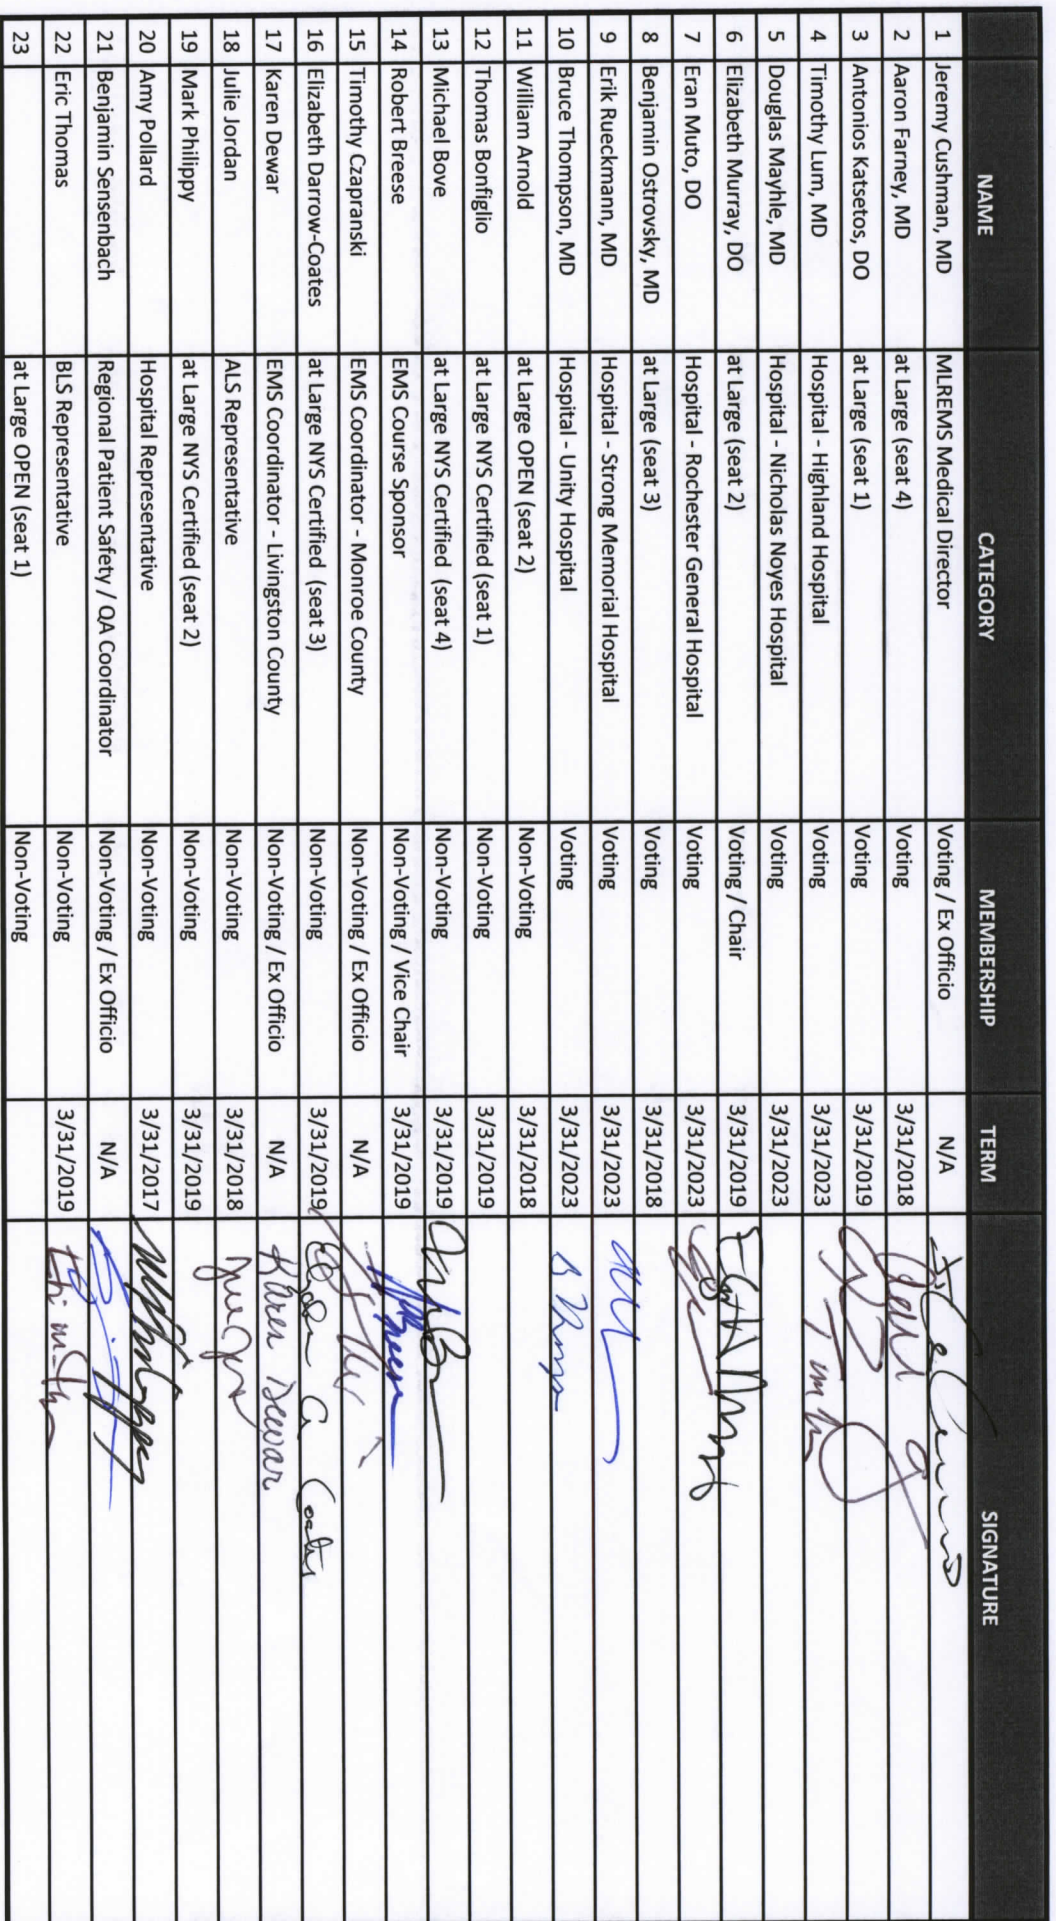 NAME CATEGORY MEMBERSHIP TERM SIGNATURE
1 Jeremy Cushman, MD MLREMS Medical Director Voting / Ex Officio N/A
2 Aaron Farney, MD at Large (seat 4) Voting 3/31/2018
3 Antonios Katsetos, DO at Large (seat 1) Voting 3/31/2019
4 Timothy Lum, MD Hospital - Highland Hospital Voting 3/31/2023
5 Douglas Mayhle, MD Hospital - Nicholas Noyes Hospital Voting 3/31/2023
6 Elizabeth Murray, DO at Large (seat 2) Voting / Chair 3/31/2019
7 Eran Muto, DO Hospital - Rochester General Hospital Voting 3/31/2023
8 Benjamin Ostrovsky, MD at Large (seat 3) Voting 3/31/2018
9 Erik Rueckmann, MD Hospital - Strong Memorial Hospital Voting 3/31/2023
10 Bruce Thompson, MD Hospital - Unity Hospital Voting 3/31/2023
11 William Arnold at Large OPEN (seat 2) Non-Voting 3/31/2018
12 Thomas Bonfiglio at Large NYS Certified (seat 1) Non-Voting 3/31/2019
13 Michael Bove at Large NYS Certified (seat 4) Non-Voting 3/31/2019
14 Robert Breese EMS Course Sponsor Non-Voting / Vice Chair 3/31/2019
15 Timothy Czapranski EMS Coordinator - Monroe County Non-Voting / Ex Officio N/A
16 Elizabeth Darrow-Coates at Large NYS Certified (seat 3) Non-Voting 3/31/2019
17 Karen Dewar EMS Coordinator - Livingston County Non-Voting / Ex Officio N/A Karen Dewar
18 Julie Jordan ALS Representative Non-Voting 3/31/2018
19 Mark Philippy at Large NYS Certified (seat 2) Non-Voting 3/31/2019
20 Amy Pollard Hospital Representative Non-Voting 3/31/2017
21 Benjamin Sensenbach Regional Patient Safety / QA Coordinator Non-Voting / Ex Officio N/A
22 Eric Thomas BLS Representative Non-Voting 3/31/2019
23 at Large OPEN (seat 1) Non-Voting